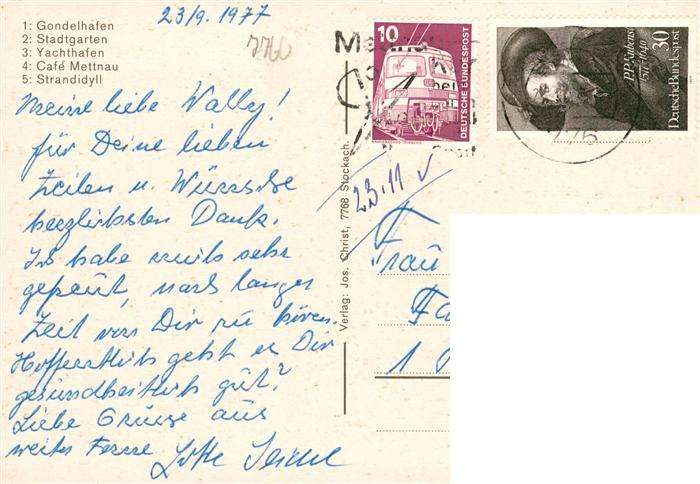 23/9. 1977
7760
1: Gondelhafen
2: Stadtgarten
3: Yachthafen
4: Café Mettnau
5: Strandidyll
Meine liebe Wally!
für Deine lieben
Zeilen u. Wünsche
herzlichsten Dank.
Ich habe mich sehr
gefreut, nach langer
Zeit von Dir zu hören.
Hoffentlich geht es Dir
gesundheitlich gut?
Liebe Grüsse aus
weiter Ferne Lotte
Verlag: Jos. Christ, 7768 Stockach.
10
DEUTSCHE BUNDESPOST
P.P. Rubens
1577-1640
30
Deutsche Bundespost
23.11
Frau
Fa
1